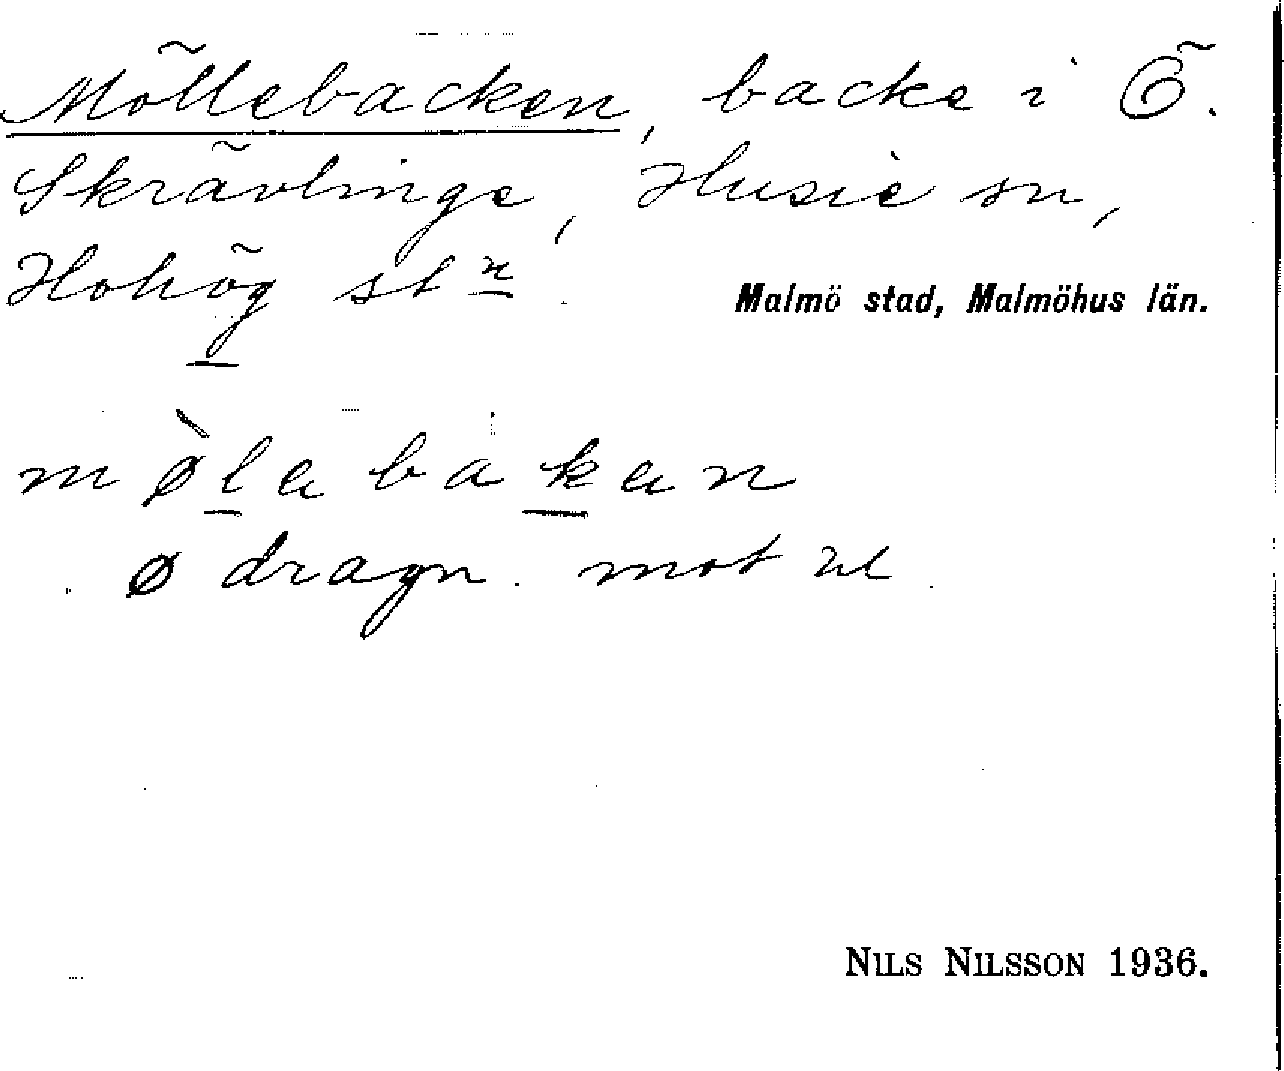 Möllebacken, backe i Ö.
Skrävlinge, Husie sn,
Hohög st n
Malmö stad, Malmöhus län.
mø̀la bakan
ø dragn. mot
NILS NILSSON 1936.